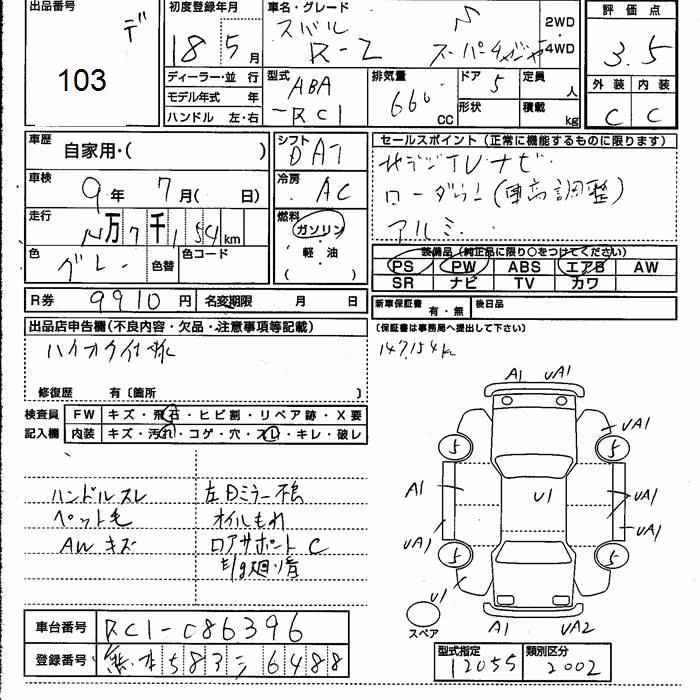 出品番号
デ
103
初度登録年月
18 5月
車名・グレード
スバル
R-2 スーパーチャージャー
2WD
4WD
評価点
3.5
外装 内装
C C
ディーラー・並 行
モデル年式 年
ハンドル 左・右
型式
ABA
-RC1
排気量
660
CC
ドア 5
形状
定員 人
積載 kg
車歴
自家用・( )
車検
9年 7月( 日)
走行
万7千154km
色
グレー
色替
色コード
シフト
DAT
冷房
AC
燃料
ガソリン
・
軽・油
( )
セールスポイント(正常に機能するものに限ります)
地デジTVナビ
ローダウン(車高調整)
アルミ
装備品(純正品に限り○をつけてください)
PS PW ABS エアB AW
SR ナビ TV カワ
R券 9910円 名変期限 月 日
新車保証書 有・無
後日品
(保証書は事務局へ提出して下さい)
147,154km
出品店申告欄(不良内容・欠品・注意事項等記載)
ハイオク仕様
修復歴 有〔箇所 〕
検査員
記入欄
FW キズ・飛石・ヒビ割・リペア跡・X要
内装 キズ・汚れ・コゲ・穴・スレ・キレ・破レ
ハンドルスレ
ペット毛
AWキズ
左Dミラー不良
オイルもれ
ロアサポートC
E/g廻り音
A1 UA1
UA1
5 5
A1 U1 UA1
UA1 UA1
5 5
U1
スペア
A1 UA2
車台番号 RC1-086396
登録番号 熊本583ミ6488
型式指定 12055
類別区分 2002